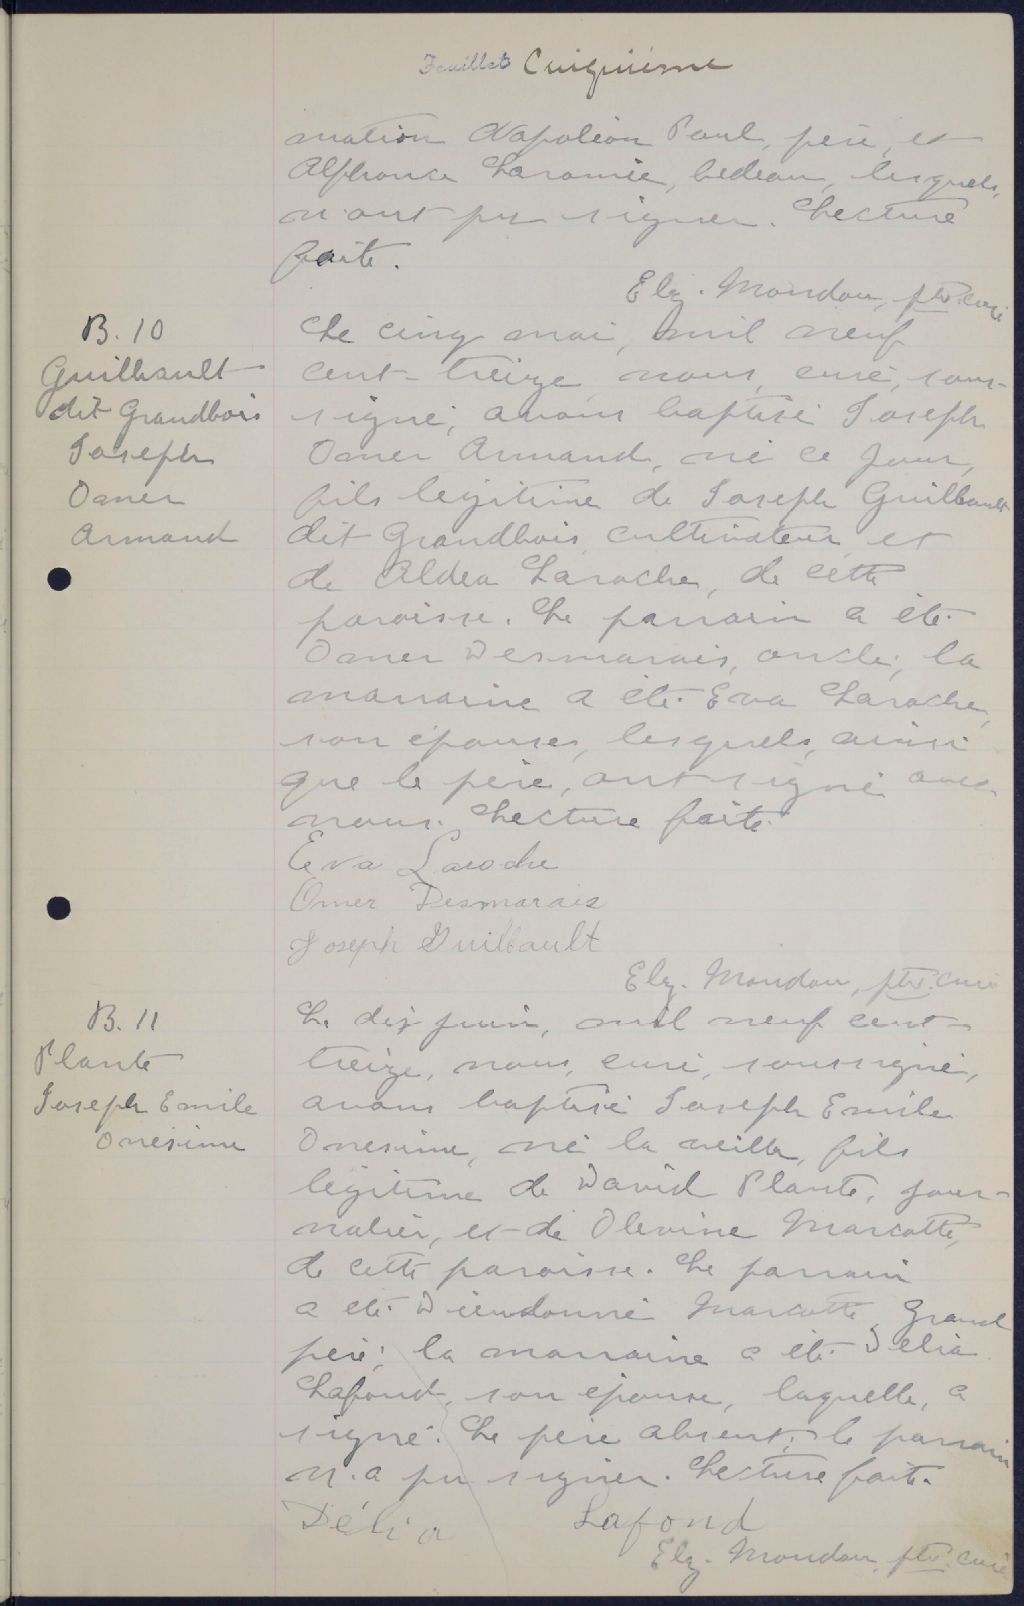 Feuillet Cinquième
mation Napoléon Paul, père, et
Alphonse Laramée, bedeau, lesquels,
n'ont pu signer. Lecture
faite.
Elz. Mondou, ptre. curé
B. 10
Guilbault
dit Grandbois
Joseph
Omer
Armand
Le cinq mai, mil neuf
cent-treize, nous, curé, sous-
signé, avons baptisé Joseph
Omer Armand, né ce jour,
fils légitime de Joseph Guilbault
dit Grandbois, cultivateur, et
de Aldea Laroche, de cette
paroisse. Le parrain a été
Omer Desmarais, oncle; la
marraine a été Eva Laroche,
son épouse, lesquels, ainsi
que le père, ont signé avec
nous. Lecture faite.
Eva Laroche
Omer Desmarais
Joseph Guilbault
Elz. Mondou, ptre. curé
B. 11
Plante
Joseph Emile
Onésime
Le dix juin, mil neuf cent-
treize, nous, curé, soussigné,
avons baptisé Joseph Emile
Onesime, né la veille, fils
légitime de David Plante, jour-
nalier, et de Olevine Marcotte,
de cette paroisse. Le parrain
a été Dieudonné Marcotte, Grand
père; la marraine a été Delia
Lafond, son épouse, laquelle, a
signé. Le père absent; le parrain
n'a pu signer. Lecture faite.
Délia Lafond
Elz. Mondou, ptre. curé